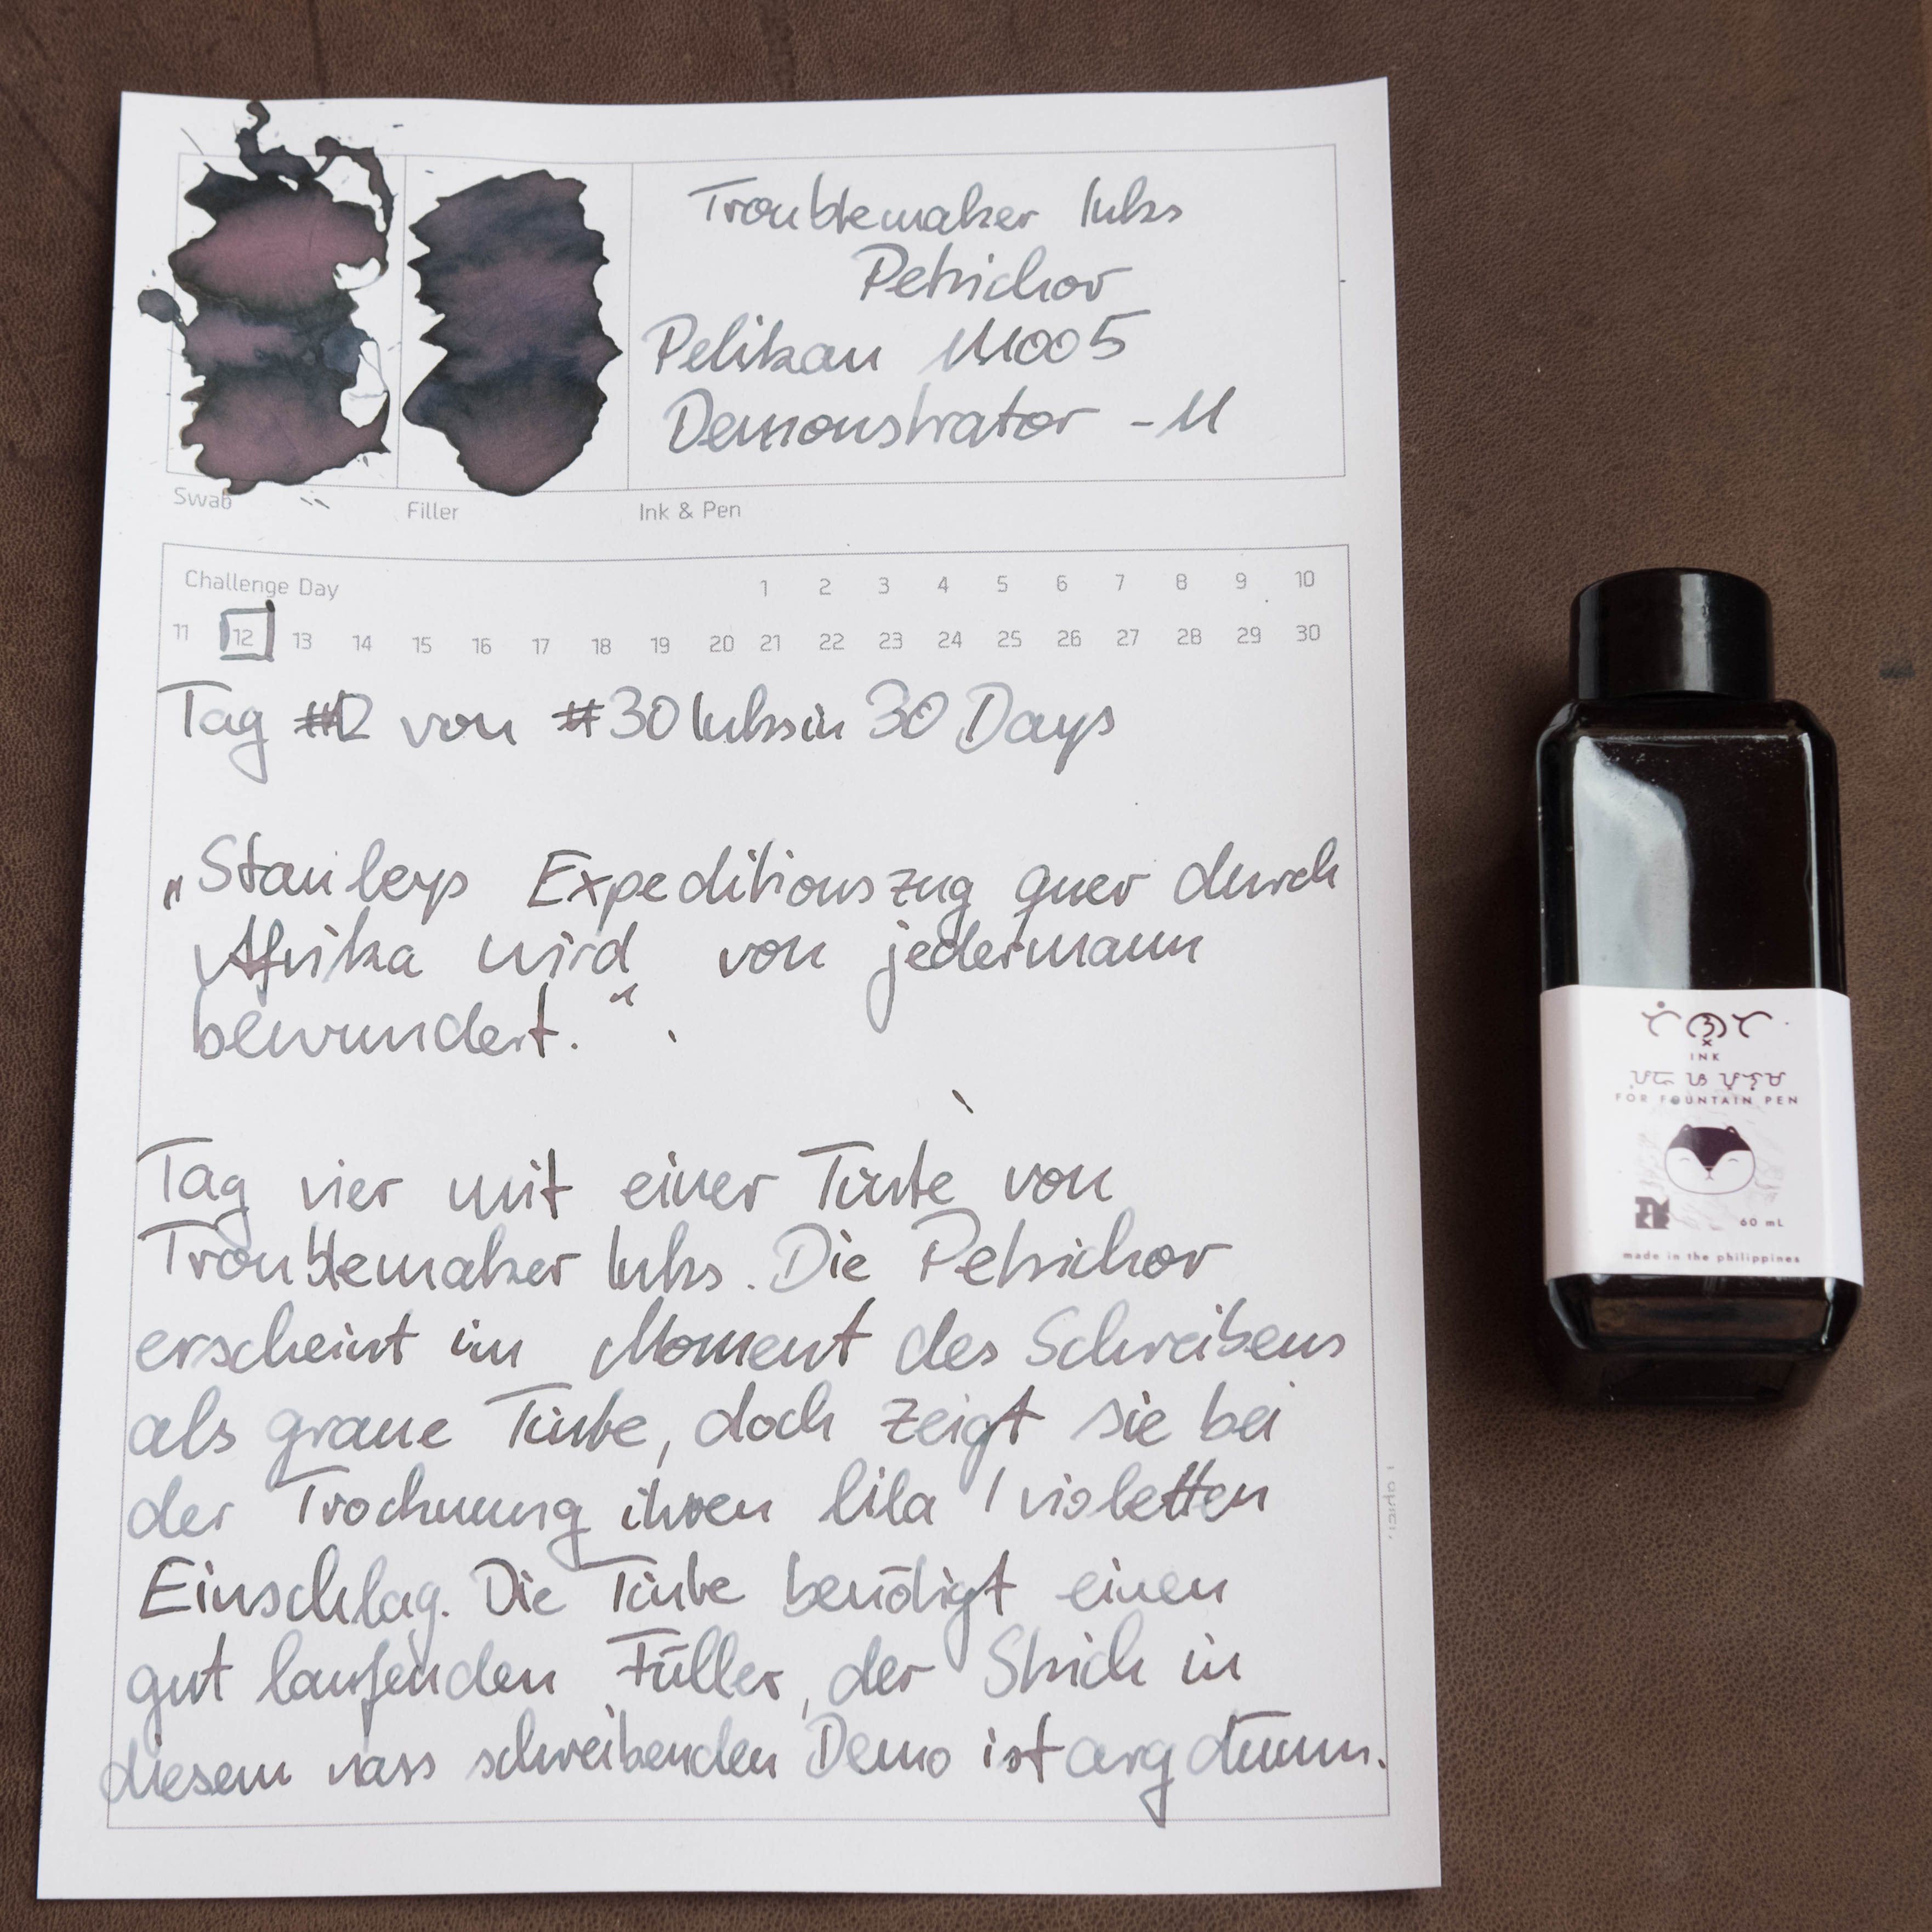 Troublemaker Inks
Petrichor
Pelikan M1005
Demonstrator - M
Swab
Filler
Ink & Pen
Challenge Day 1 2 3 4 5 6 7 8 9 10
11 12 13 14 15 16 17 18 19 20 21 22 23 24 25 26 27 28 29 30
Tag #12 von #30 Inksin 30 Days
„Stanleys Expeditionszug quer durch
Afrika wird von jedermann
bewundert.“
Tag vier mit einer Tinte von
Troublemaker Inks. Die Petrichor
erscheint im Moment des Schreibens
als graue Tinte, doch zeigt sie bei
der Trocknung ihren lila / violetten
Einschlag. Die Tinte benötigt einen
gut laufenden Füller, der Strich in
diesem nass schreibenden Demo ist arg dünn.
INK
FOR FOUNTAIN PEN
60 mL
made in the philippines